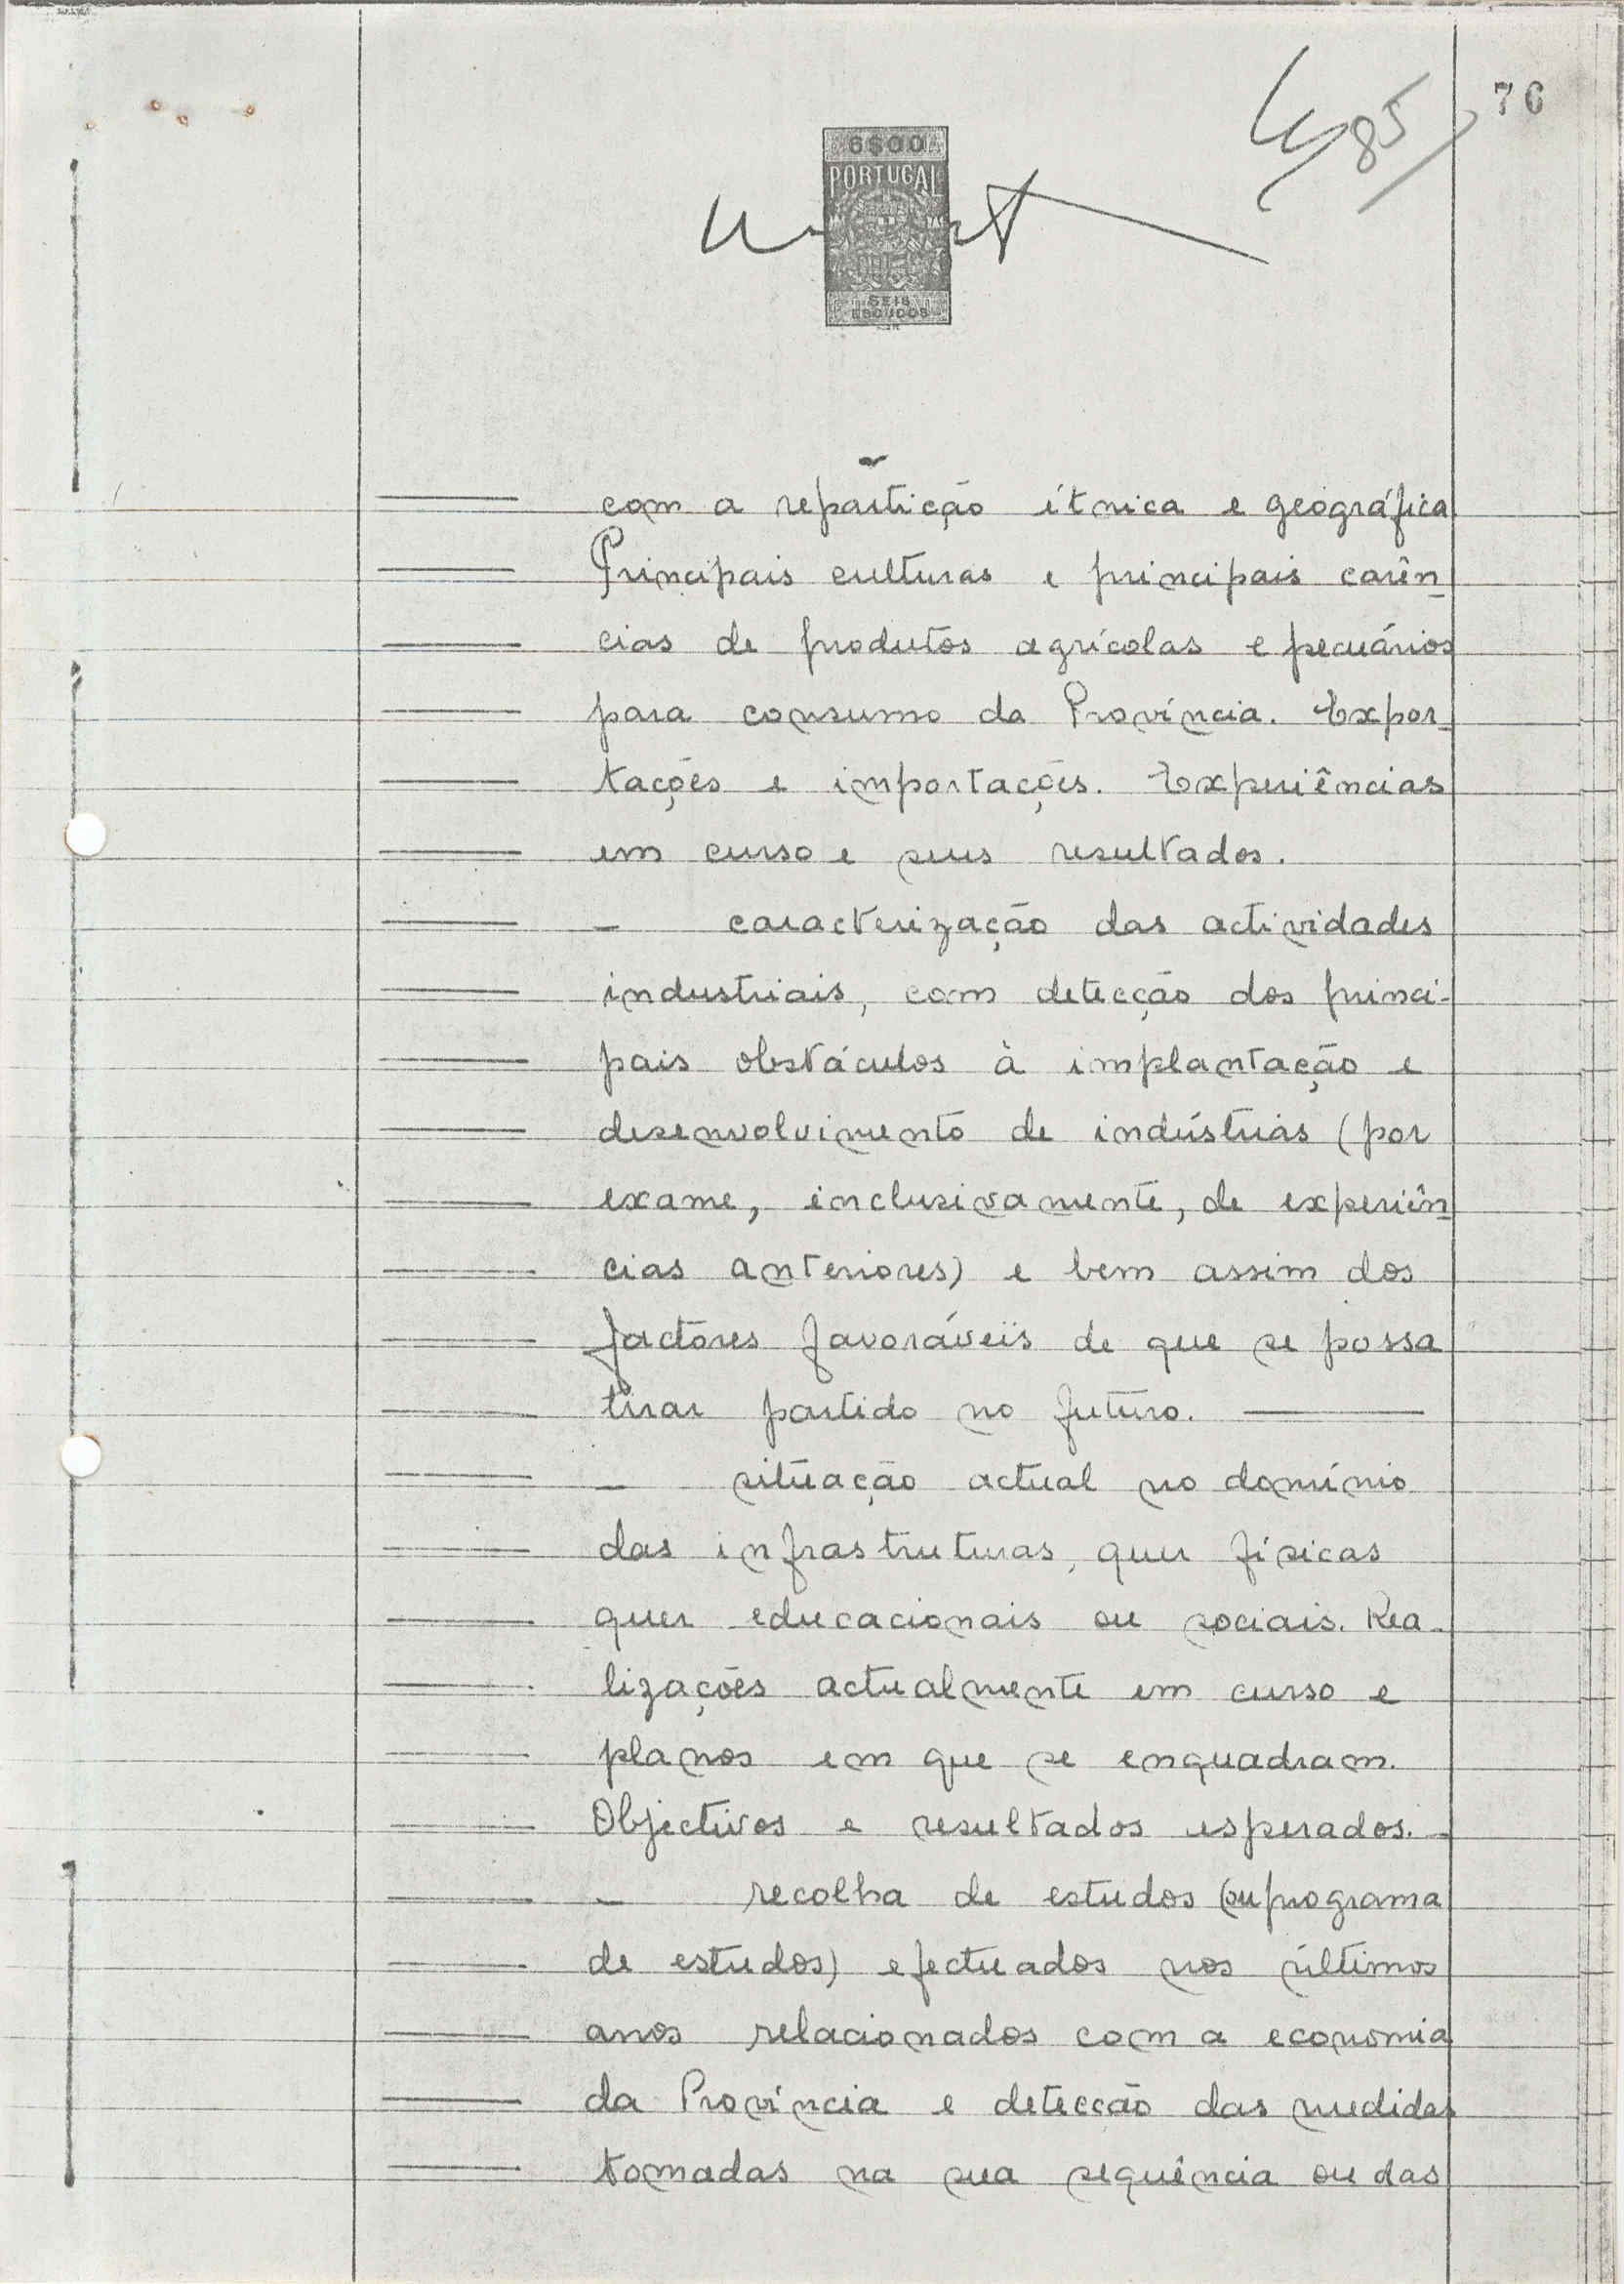 76
85
6$00
PORTUGAL
SEIS
ESCUDOS
com a repartição étnica e geográfica
Principais culturas e principais carên-
cias de produtos agrícolas e pecuários
para consumo da Província. Expor-
tações e importações. Experiências
em curso e seus resultados.
- caracterização das actividades
industriais, com detecção dos princi-
pais obstáculos à implantação e
desenvolvimento de indústrias (por
exame, inclusivamente, de experiên-
cias anteriores) e bem assim dos
factores favoráveis de que se possa
tirar partido no futuro. —
- situação actual no domínio
das infrastruturas, quer físicas
quer educacionais ou sociais. Rea-
lizações actualmente em curso e
planos em que se enquadram.
Objectivos e resultados esperados. -
- recolha de estudos (ou programa
de estudos) efectuados nos últimos
anos relacionados com a economia
da Província e detecção das medidas
tomadas na sua sequência ou das